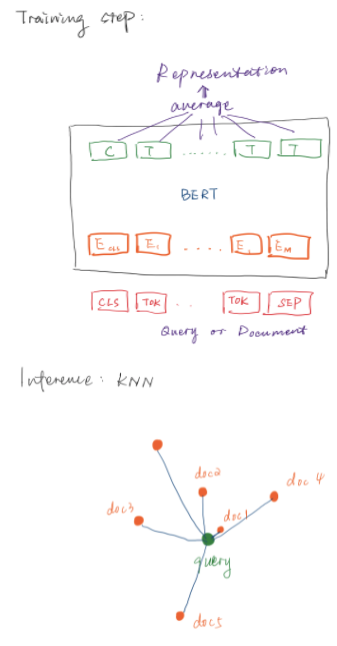 Training step:
Representation
average
C T ...... T T
BERT
E_CLS E_1 .... E_1 E_M
CLS TOK .. TOK SEP
Query or Document
Inference: KNN
doc2
doc 4
doc3
doc1
query
doc5